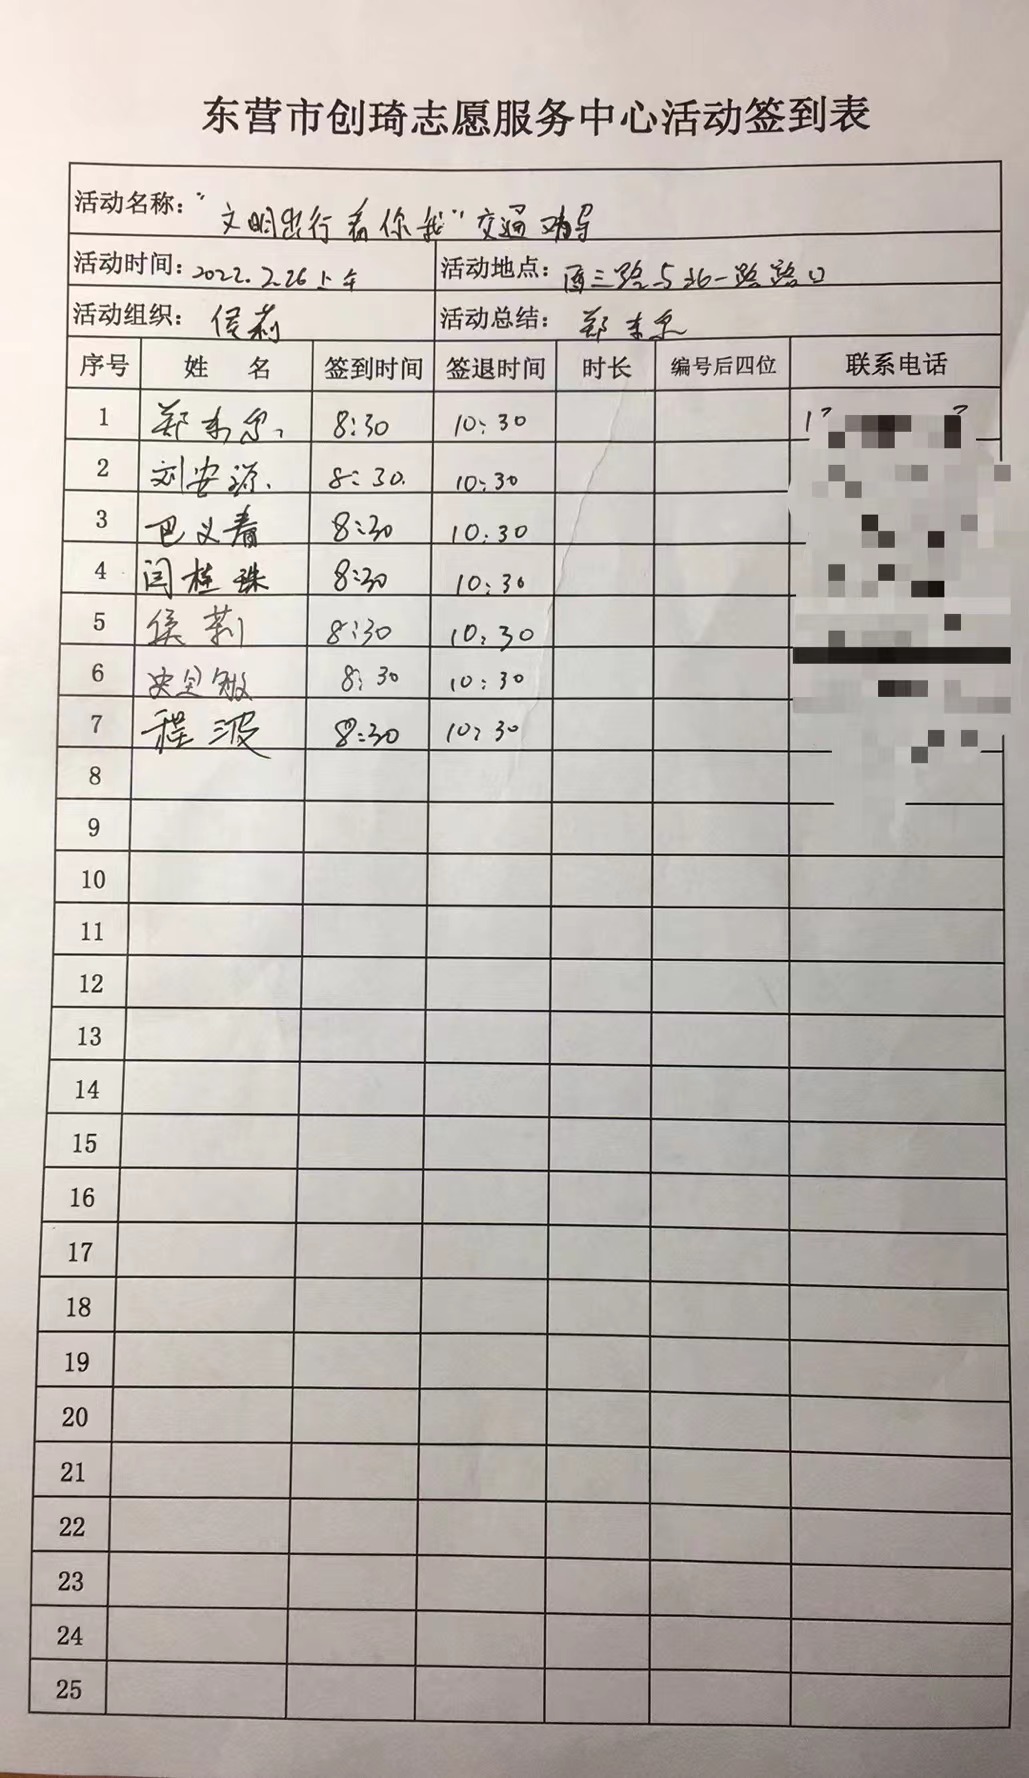 东营市创琦志愿服务中心活动签到表
活动名称："文明出行 看你我"交通劝导
活动时间：2022.2.26上午 活动地点：西三路与北一路路口
活动组织：侯莉 活动总结：郑
序号 姓 名 签到时间 签退时间 时长 编号后四位 联系电话
1 郑 8:30 10:30
2 刘安源 8:30 10:30
3 巴义春 8:30 10:30
4 闫桂珠 8:30 10:30
5 侯莉 8:30 10:30
6 8:30 10:30
7 程波 8:30 10:30
8
9
10
11
12
13
14
15
16
17
18
19
20
21
22
23
24
25